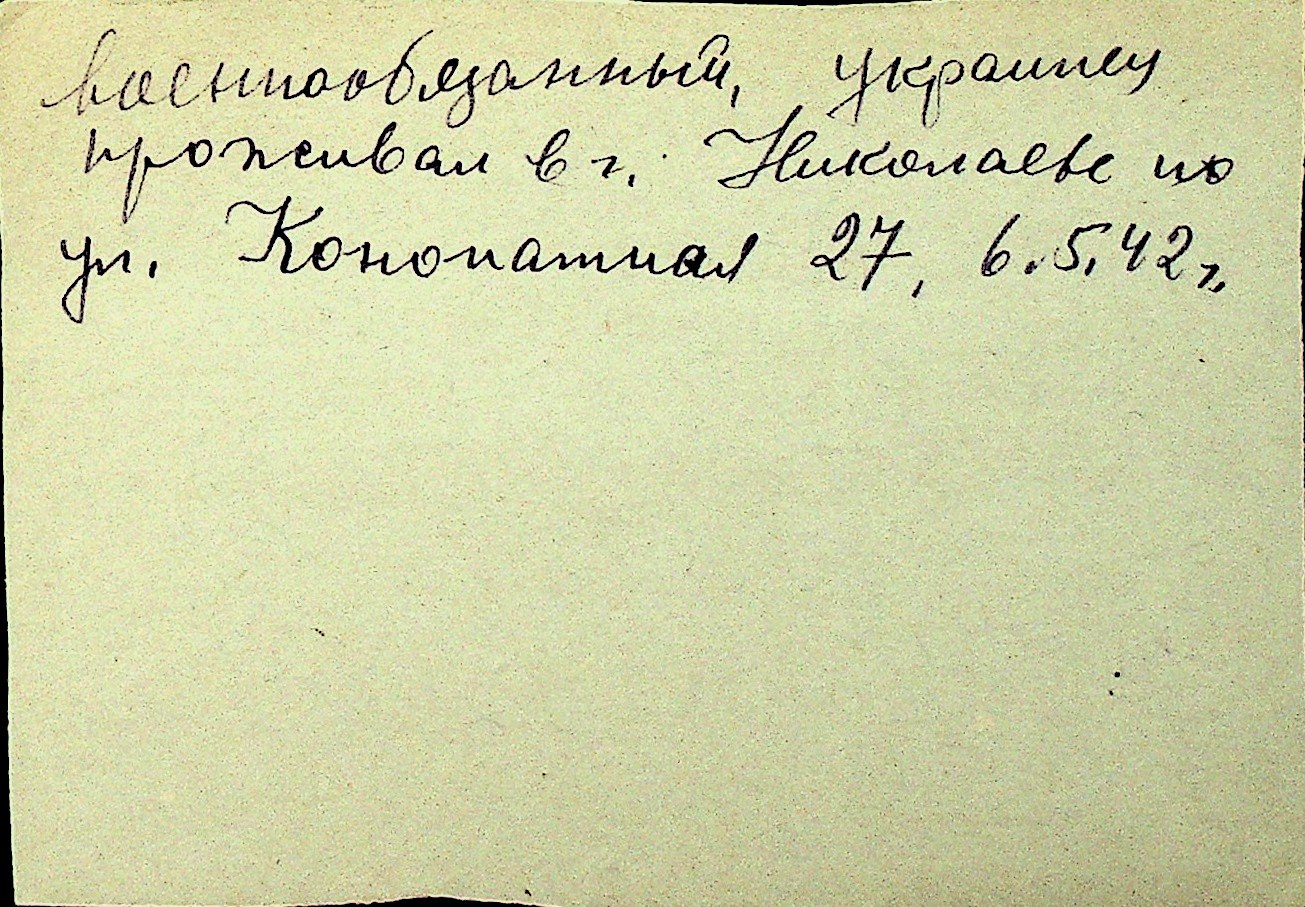 военнообязанный, украинец
проживал в г. Николаеве по
ул. Конопатная 27, 6.5.42 г.